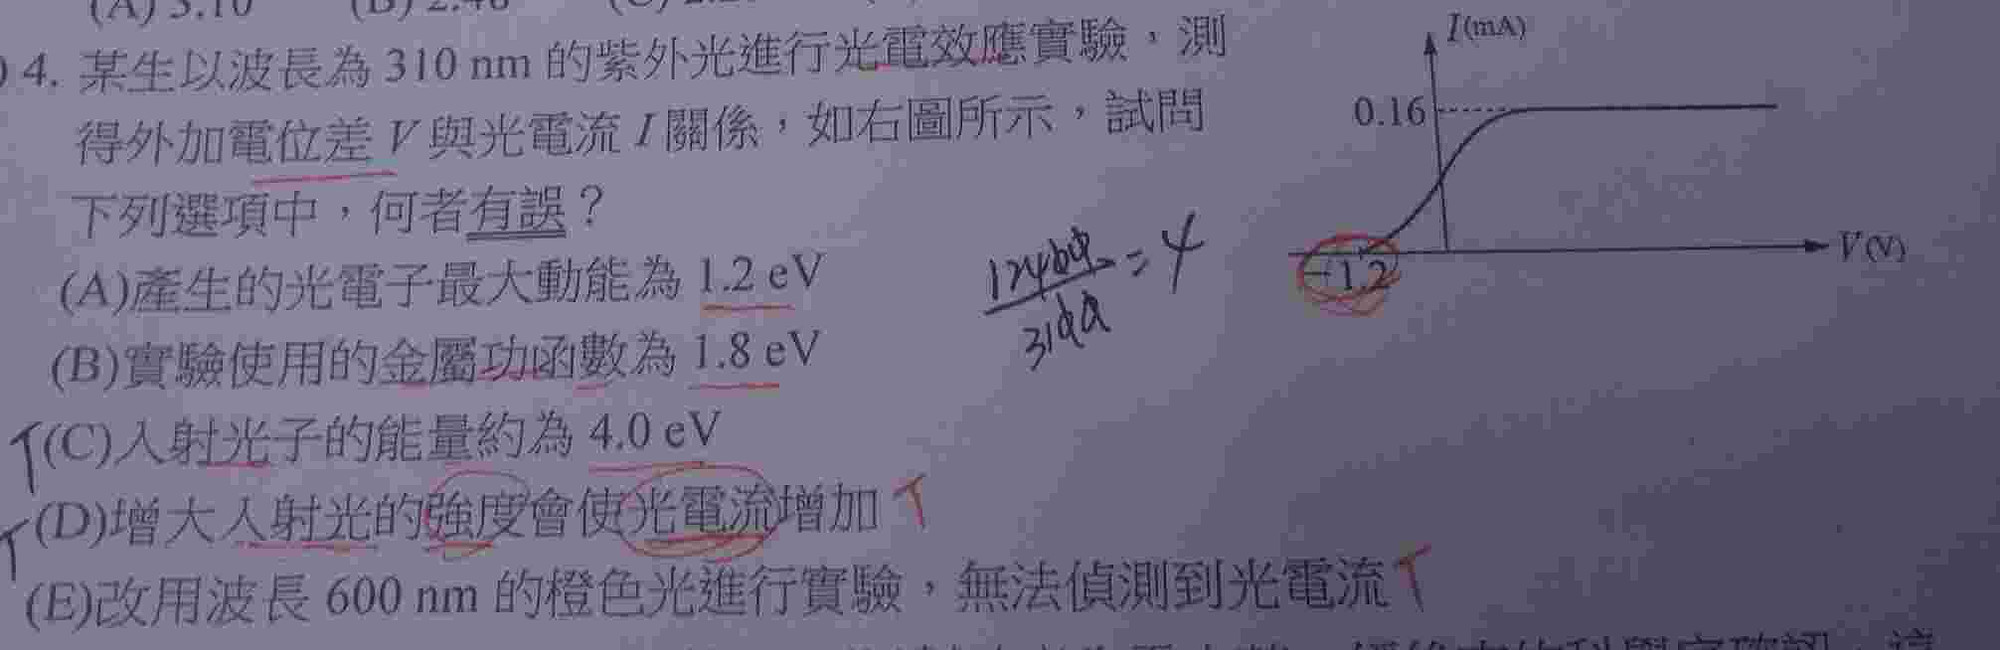 (A) 3.10
4. 某生以波長為 310 nm 的紫外光進行光電效應實驗，測
得外加電位差 V 與光電流 I 關係，如右圖所示，試問
下列選項中，何者有誤？
(A)產生的光電子最大動能為 1.2 eV
(B)實驗使用的金屬功函數為 1.8 eV
T (C)入射光子的能量約為 4.0 eV
T (D)增大入射光的強度會使光電流增加 T
(E)改用波長 600 nm 的橙色光進行實驗，無法偵測到光電流 T
= 4
I(mA)
0.16
-1.2
V(V)